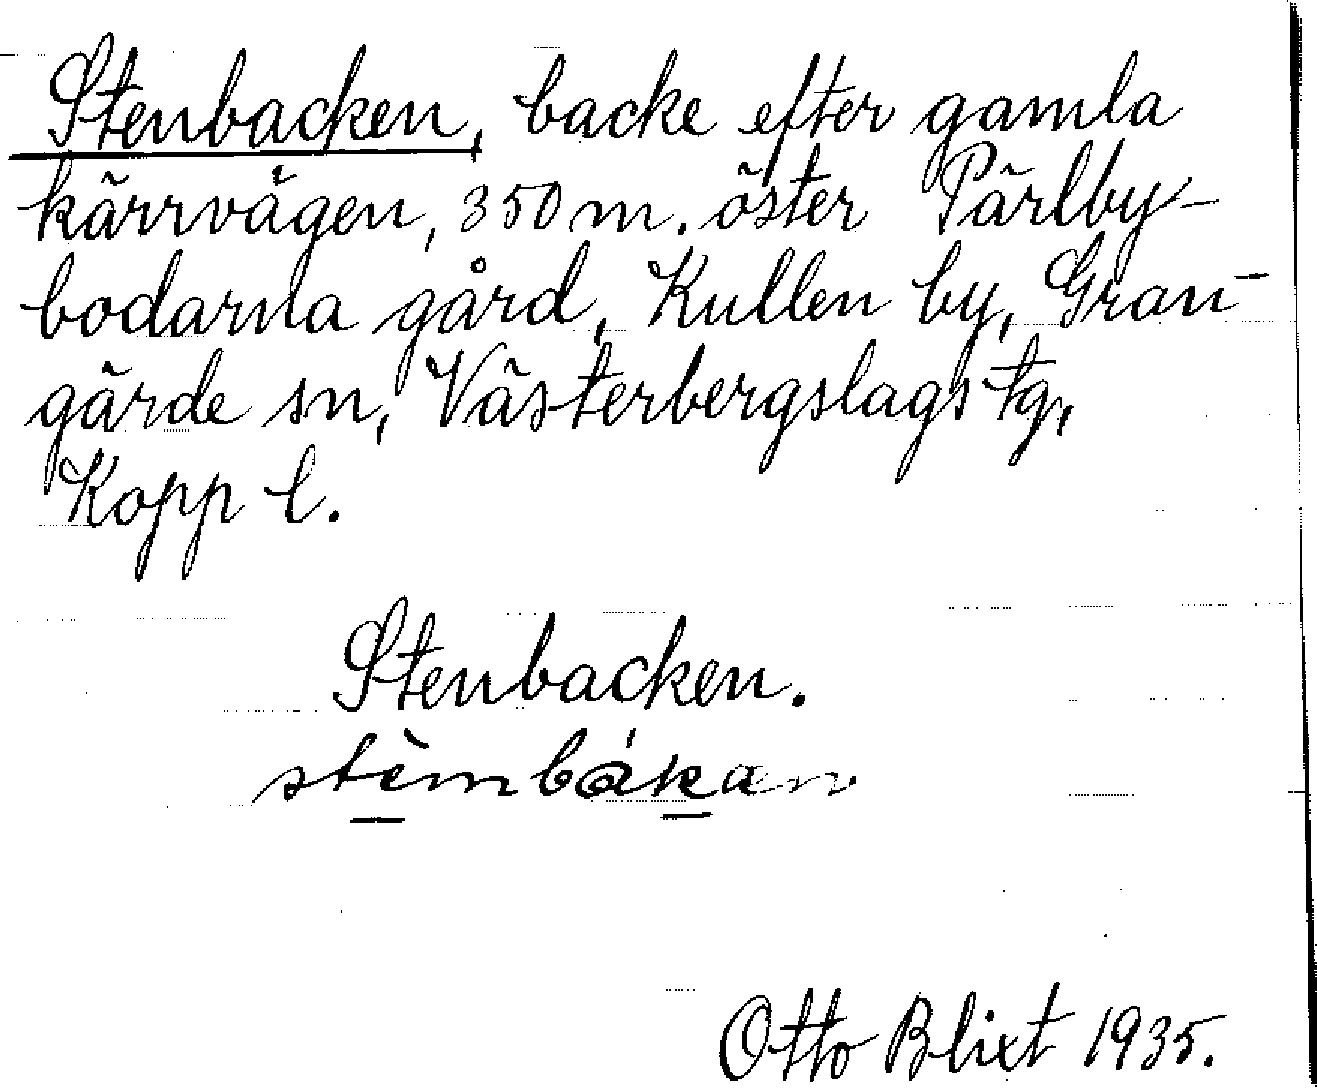 Stenbacken, backe efter gamla
kärrvägen, 350 m. öster Pärlby-
bodarna gård, Kullen by, Gran-
gärde sn, Västerbergslags tg,
Kopp l.
Stenbacken.
stèmbákæn
Otto Blixt 1935.